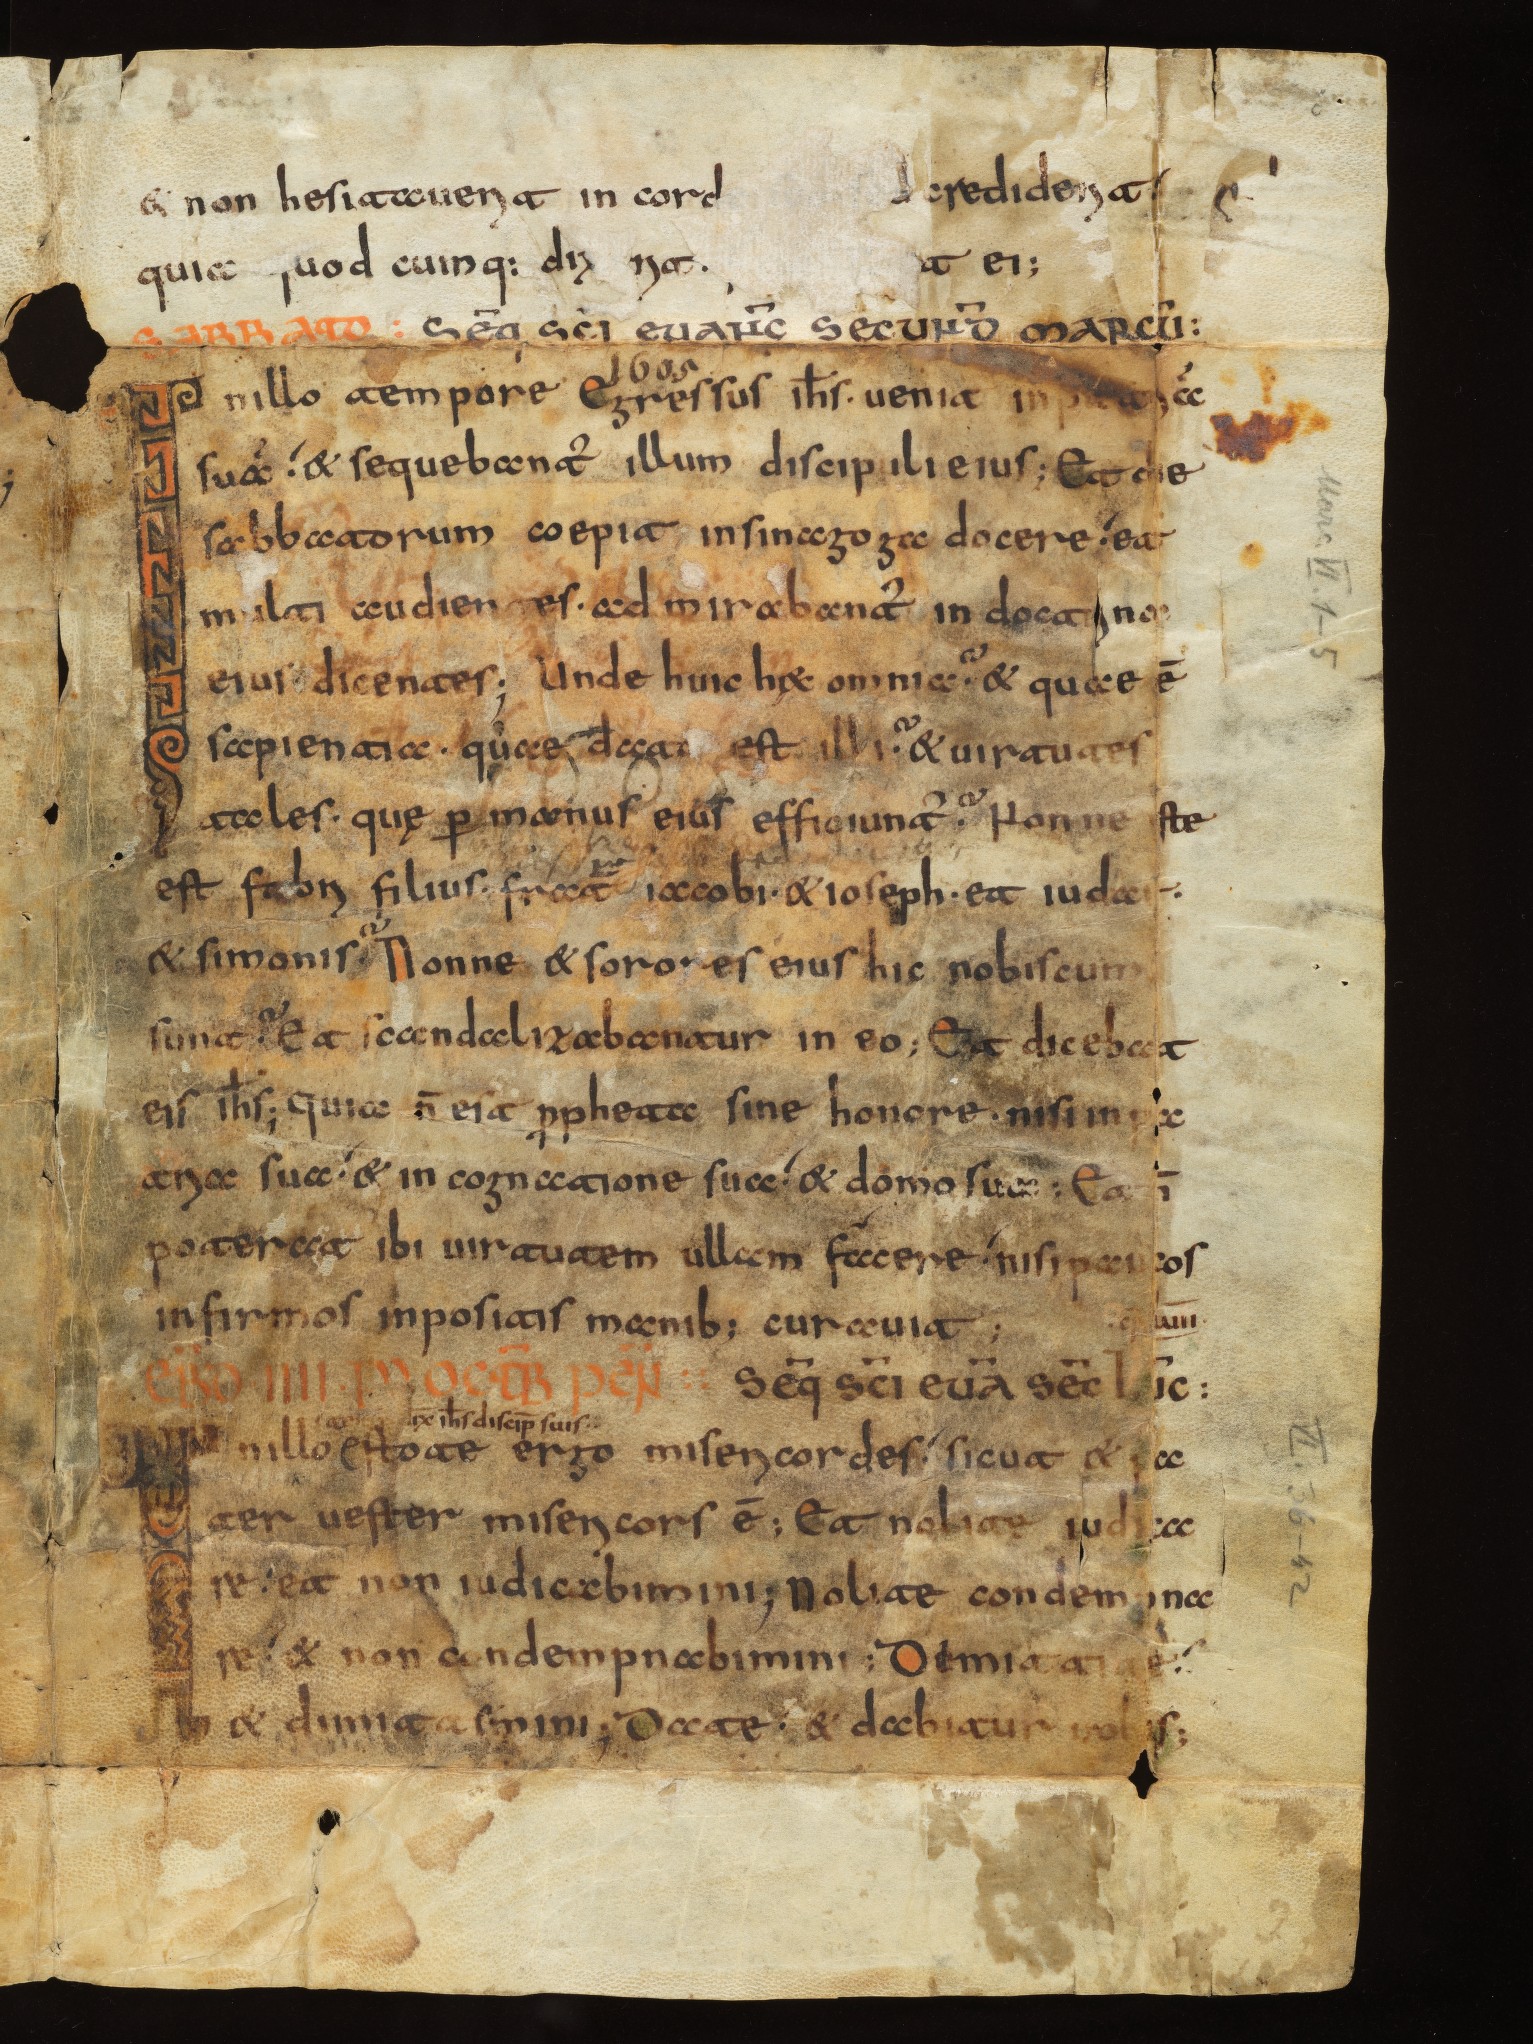 & non hesitauerit in cord crediderit
quia quod cumq: dix rit. t ei;
SABBATO: SEQ̄ SC̄I EUANḠ SECUND̄ MARCŪ:
1605
In illo tempore Egressus ih̄s. uenit in
suā & sequebant᷒ illum discipuli eius; Et die
sabbatorum coepit in sinagoga docere et
multi audientes. ad mirabant᷒ in doctrina
eius dicentes; Unde huic hęc omnia & quae ē
sapientia. quae data est illi & uirtutes
tales. quę ꝑ manus eius efficiunt᷒ Nonne iste
est fabri filius. frat iacobi. & ioseph. et iudae.
& simonis Nonne & sorores eius hic nobiscum
sunt Et scandalizabantur in eo; Et dicebat
eis ih̄s; quia n̄ est ꝓpheta sine honore. nisi in pa
tria sua & in cognatione sua & domo sua; Et n̄
poterat ibi uirtutem ullam facere nisi paucos
infirmos inpositis manib; curauit;
SEQ̄ SC̄I EUĀ SEC̄ LUC̄:
dix ih̄s discip̄ suis
In illo Estote ergo misericordes sicut & pa
ter uester misericors ē; Et nolite iudica
re et non iudicabimini; Nolite condempna
re & non condempnabimini; Dimittite
& dimittemini; Date. & dabitur uobis;
Marc VI. 1-5
VI. 36-42
2